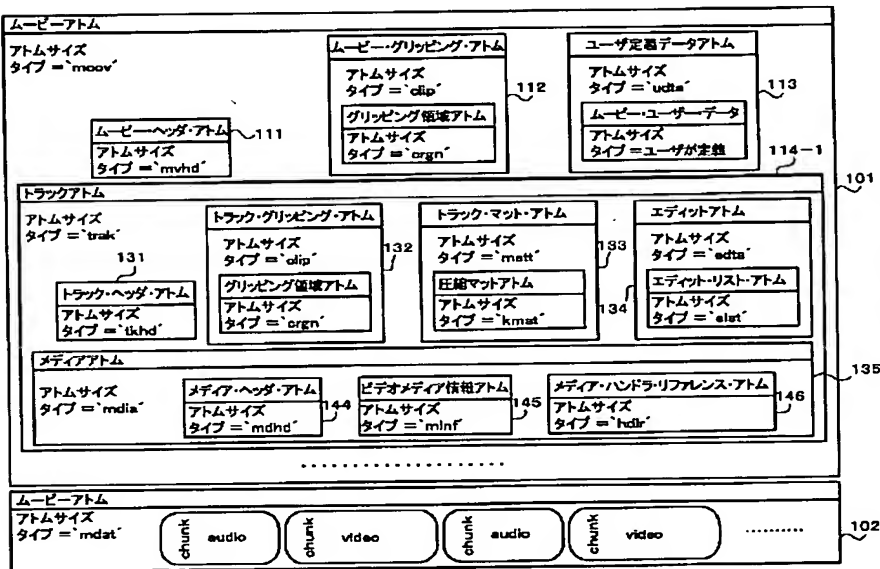 ムービーアトム
アトムサイズ
タイプ＝`moov'
ムービー・グリッピング・アトム
アトムサイズ
タイプ＝`clip'
グリッピング領域アトム
アトムサイズ
タイプ＝`crgn'
112
ユーザ定義データアトム
アトムサイズ
タイプ＝`udta'
ムービー・ユーザー・データ
アトムサイズ
タイプ＝ユーザが定義
113
ムービーヘッダ・アトム
アトムサイズ
タイプ＝`mvhd'
111
114-1
101
トラックアトム
アトムサイズ
タイプ＝`trak'
131
トラック・ヘッダ・アトム
アトムサイズ
タイプ＝`tkhd'
トラック・グリッピング・アトム
アトムサイズ
タイプ＝`clip'
グリッピング領域アトム
アトムサイズ
タイプ＝`crgn'
132
トラック・マット・アトム
アトムサイズ
タイプ＝`matt'
圧縮マットアトム
アトムサイズ
タイプ＝`kmat'
133
エディットアトム
アトムサイズ
タイプ＝`edts'
エディット・リスト・アトム
アトムサイズ
タイプ＝`elst'
134
メディアアトム
アトムサイズ
タイプ＝`mdia'
メディア・ヘッダ・アトム
アトムサイズ
タイプ＝`mdhd'
144
ビデオメディア情報アトム
アトムサイズ
タイプ＝`minf'
145
メディア・ハンドラ・リファレンス・アトム
アトムサイズ
タイプ＝`hdlr'
146
135
ムービーアトム
アトムサイズ
タイプ＝`mdat'
chunk audio
chunk video
chunk audio
chunk video
102